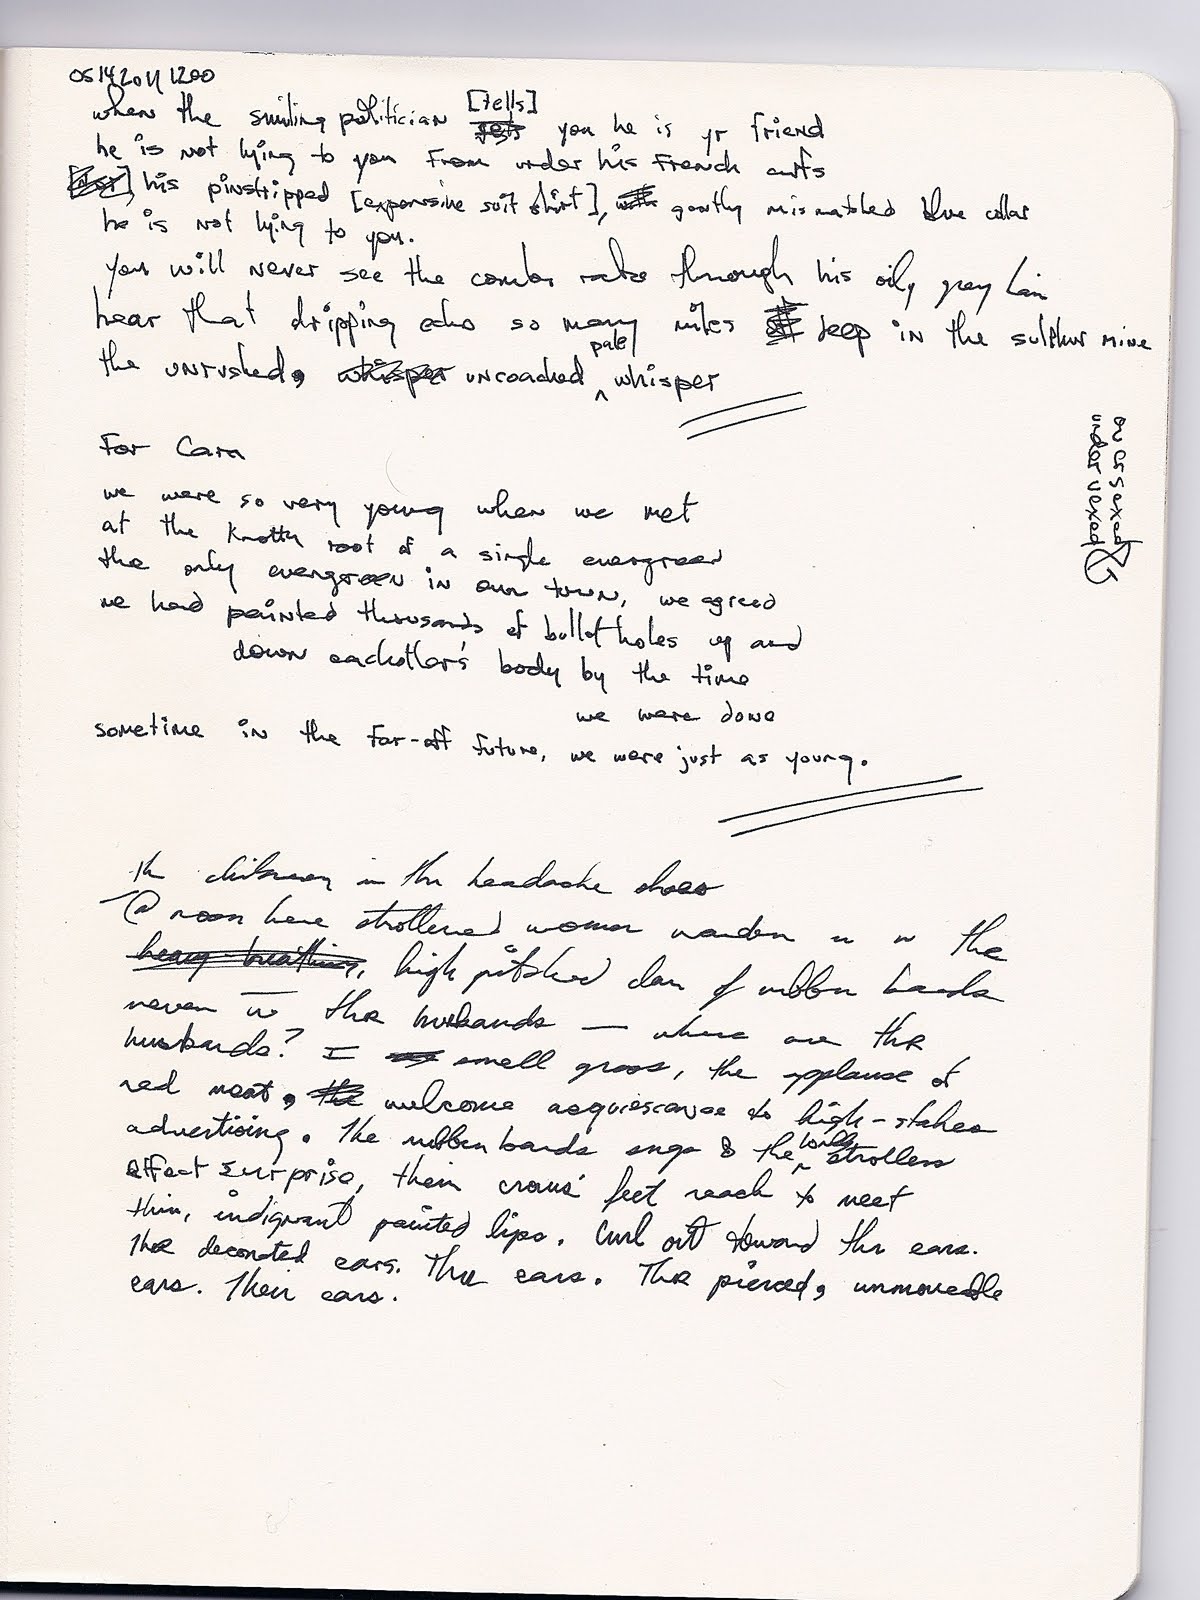 05142011 1200
when the smiling politician [tells] you he is yr friend
he is not lying to you from under his French cuffs
his pinstripped [expensive suit shirt], goatly mismatched blue collar
he is not lying to you.
you will never see the combs rake through his oily grey hair
hear that dripping echo so many miles deep in the sulphur mine
the unrushed, whisper uncoached pale whisper
For Cara
we were so very young when we met
at the knotty root of a single evergreen
the only evergreen in our town, we agreed
we had painted thousands of bullet holes up and
down eachother's body by the time
we were done
sometime in the far-off future, we were just as young.
oversexed &
undervexed
the in the headache shoes
@ noon here strollered women wander in the
heavy breathing, high pitched of rubber bands
never the husbands — where are the
husbands? I smell grass, the applause of
red meat, the welcome acquiescence to high-stakes
advertising. The rubber bands snap & the strollers
effect surprise, their crows' feet reach to meet
thin, indignant painted lips. Curl out toward the ears.
The decorated ears. The ears. The pierced, unmoveable
ears. Their ears.